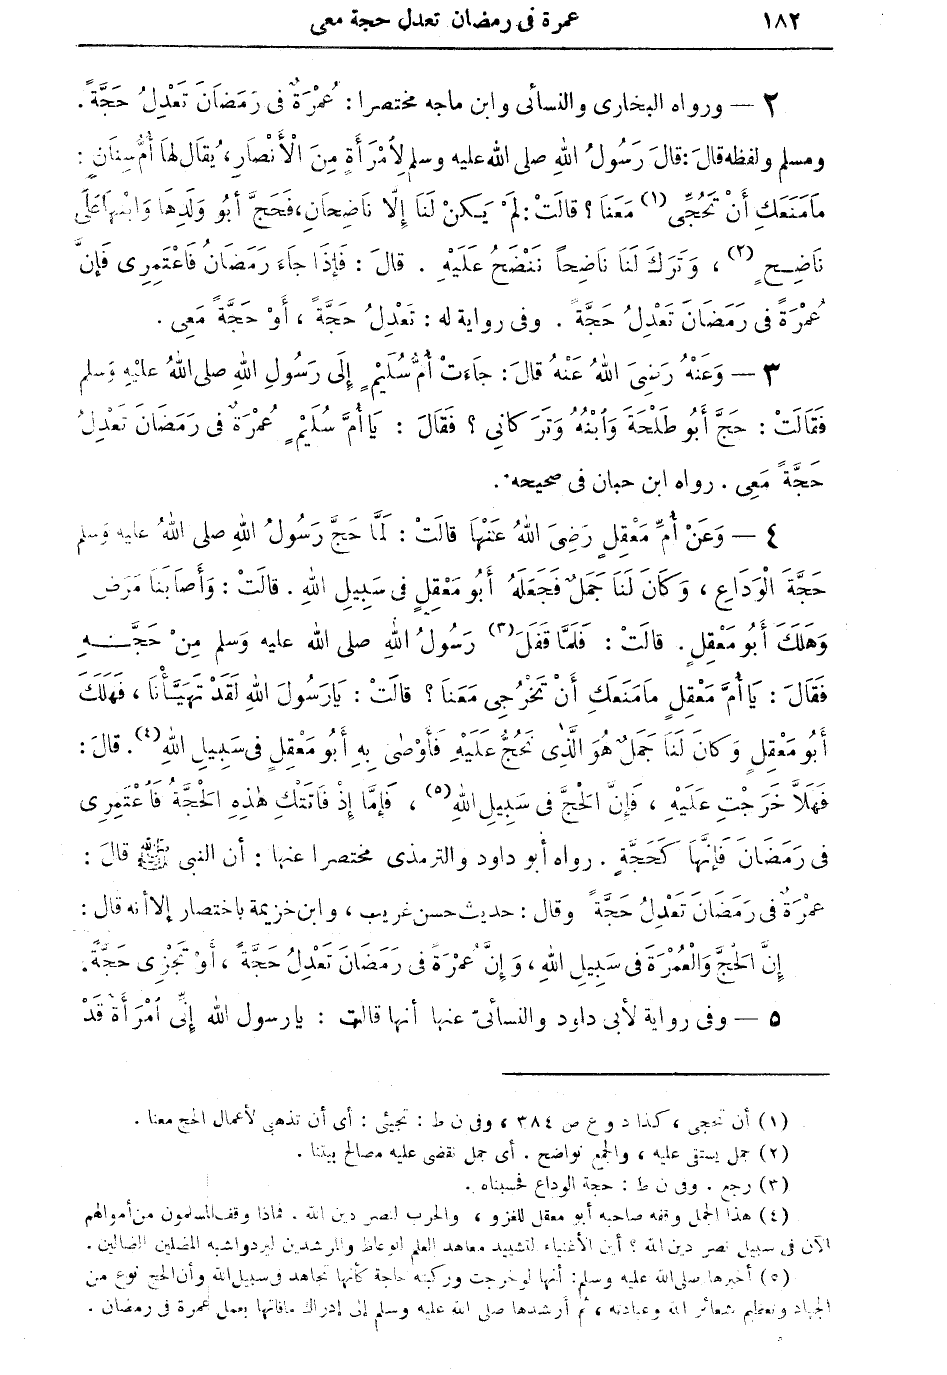 ١٨٢ عمرة فى رمضان تعدل حجة معى
٢ — ورواه البخارى والنسائى وابن ماجه مختصرا : عُمْرَةٌ فى رَمَضَانَ تَعْدِلُ حَجَّةً .
ومسلم ولفظه قالَ : قالَ رَسُولُ اللهِ صلى الله عليه وسلم لِأمْرَأَةٍ مِنَ الْأَنْصَارِ ، يُقَالُ لهَا أُمُّ سِنَانٍ :
مَامَنَعَكِ أَنْ تَحُجِّى (١) مَعَنَا ؟ قالَتْ : لَمْ يَكُنْ لَنَا إِلَّا نَاضِحَانِ ، فَحَجَّ أَبُو وَلَدِهَا وَابْنُهَا عَلَى
نَاضِحٍ (٢) ، وَتَرَكَ لَنَا نَاضِحاً نَنْضَحُ عَلَيْهِ . قالَ : فَإِذَا جَاءَ رَمَضَانُ فَاعْتَمِرِى فَإِنَّ
عُمْرَةً فى رَمَضَانَ تَعْدِلُ حَجَّةً . وفى رواية له : تَعْدِلُ حَجَّةً ، أَوْ حَجَّةً مَعِى .
٣ — وَعَنْهُ رَضِىَ اللهُ عَنْهُ قالَ : جَاءَتْ أُمُّ سُلَيْمٍ إِلَى رَسُولِ اللهِ صلى اللهُ عليْهِ وَسلم
فَقَالَتْ : حَجَّ أَبُو طَلْحَةَ وَابْنُهُ وَتَرَكَانِى ؟ فَقَالَ : يَا أُمَّ سُلَيْمٍ عُمْرَةٌ فى رَمَضَانَ تَعْدِلُ
حَجَّةً مَعِى . رواه ابن حبان فى صحيحه .
٤ — وَعَنْ أُمِّ مَعْقِلٍ رَضِىَ اللهُ عَنْهَا قالَتْ : لَمَّا حَجَّ رَسُولُ اللهِ صلى اللهُ عليه وَسلم
حَجَّةَ الْوَدَاعِ ، وَكَانَ لَنَا جَمَلٌ فَجَعَلَهُ أَبُو مَعْقِلٍ فى سَبِيلِ اللهِ . قالَتْ : وَأَصَابَنَا مَرَضٌ
وَهَلَكَ أَبُو مَعْقِلٍ . قالَتْ : فَلَمَّا قَفَلَ (٣) رَسُولُ اللهِ صلى الله عليه وَسلم مِنْ حَجَّتِهِ
فَقَالَ : يَا أُمَّ مَعْقِلٍ مَامَنَعَكِ أَنْ تَخْرُجِى مَعَنَا ؟ قالَتْ : يَارَسُولَ اللهِ لَقَدْ تَهَيَّأْنَا ، فَهَلَكَ
أَبُو مَعْقِلٍ وَكَانَ لَنَا جَمَلٌ هُوَ الَّذِى نَحُجُّ عَلَيْهِ فَأَوْصٰى بِهِ أَبُو مَعْقِلٍ فى سَبِيلِ اللهِ (٤) . قالَ :
فَهَلَّا خَرَجْتِ عَلَيْهِ ، فَإِنَّ الْحَجَّ فى سَبِيلِ اللهِ (٥) ، فَإِمَّا إِذْ فَاتَتْكِ هٰذِهِ الْحَجَّةُ فَاعْتَمِرِى
فى رَمَضَانَ فَإِنَّهَا كَحَجَّةٍ . رواه أبو داود والترمذى مختصرا عنها : أن النبى ﷺ قالَ :
عمْرَةٌ فى رَمَضَانَ تَعْدِلُ حَجَّةً وقال : حديث حسن غريب ، وابن خزيمة باختصار إلا أنه قال :
إِنَّ الْحَجَّ وَالْعُمْرَةَ فى سَبِيلِ اللهِ ، وَإِنَّ عُمْرَةً فى رَمَضَانَ تَعْدِلُ حَجَّةً ، أَوْ تَجْزِى حَجَّةً .
٥ — وفى رواية لأبى داود والنسائىّ عنها أنها قالت : يارسول الله إِنِّى امْرَأَةٌ قَدْ
(١) أن تحجى ، كذا د و ع ص ٣٨٤ ، وفى ن ط : تجيئى : أى أن تذهبى لأعمال الحج معنا .
(٢) جمل يستقى عليه ، والجمع نواضح . أى جمل نقضى عليه مصالح بيتنا .
(٣) رجع . وفى ن ط : حجة الوداع فحسبناه .
(٤) هذا الجمل وقفه صاحبه أبو معقل للغزو ، والحرب لنصر دين الله . فماذا وقف المسلمون من أموالهم
الآن فى سبيل نصر دين الله ؟ أين الأغنياء لتشييد معاهد العلم الوعاظ والمرشدين ليردوا شبه المضلين الضالين .
(٥) أخبرها صلى الله عليه وسلم : أنها لو خرجت وركبته حاجة كأنها تجاهد فى سبيل الله وأن الحج نوع من
الجهاد وتعظيم شعائر الله وعبادته ، ثم أرشدها صلى الله عليه وسلم إلى إدراك مافاتها بعمل عمرة فى رمضان .